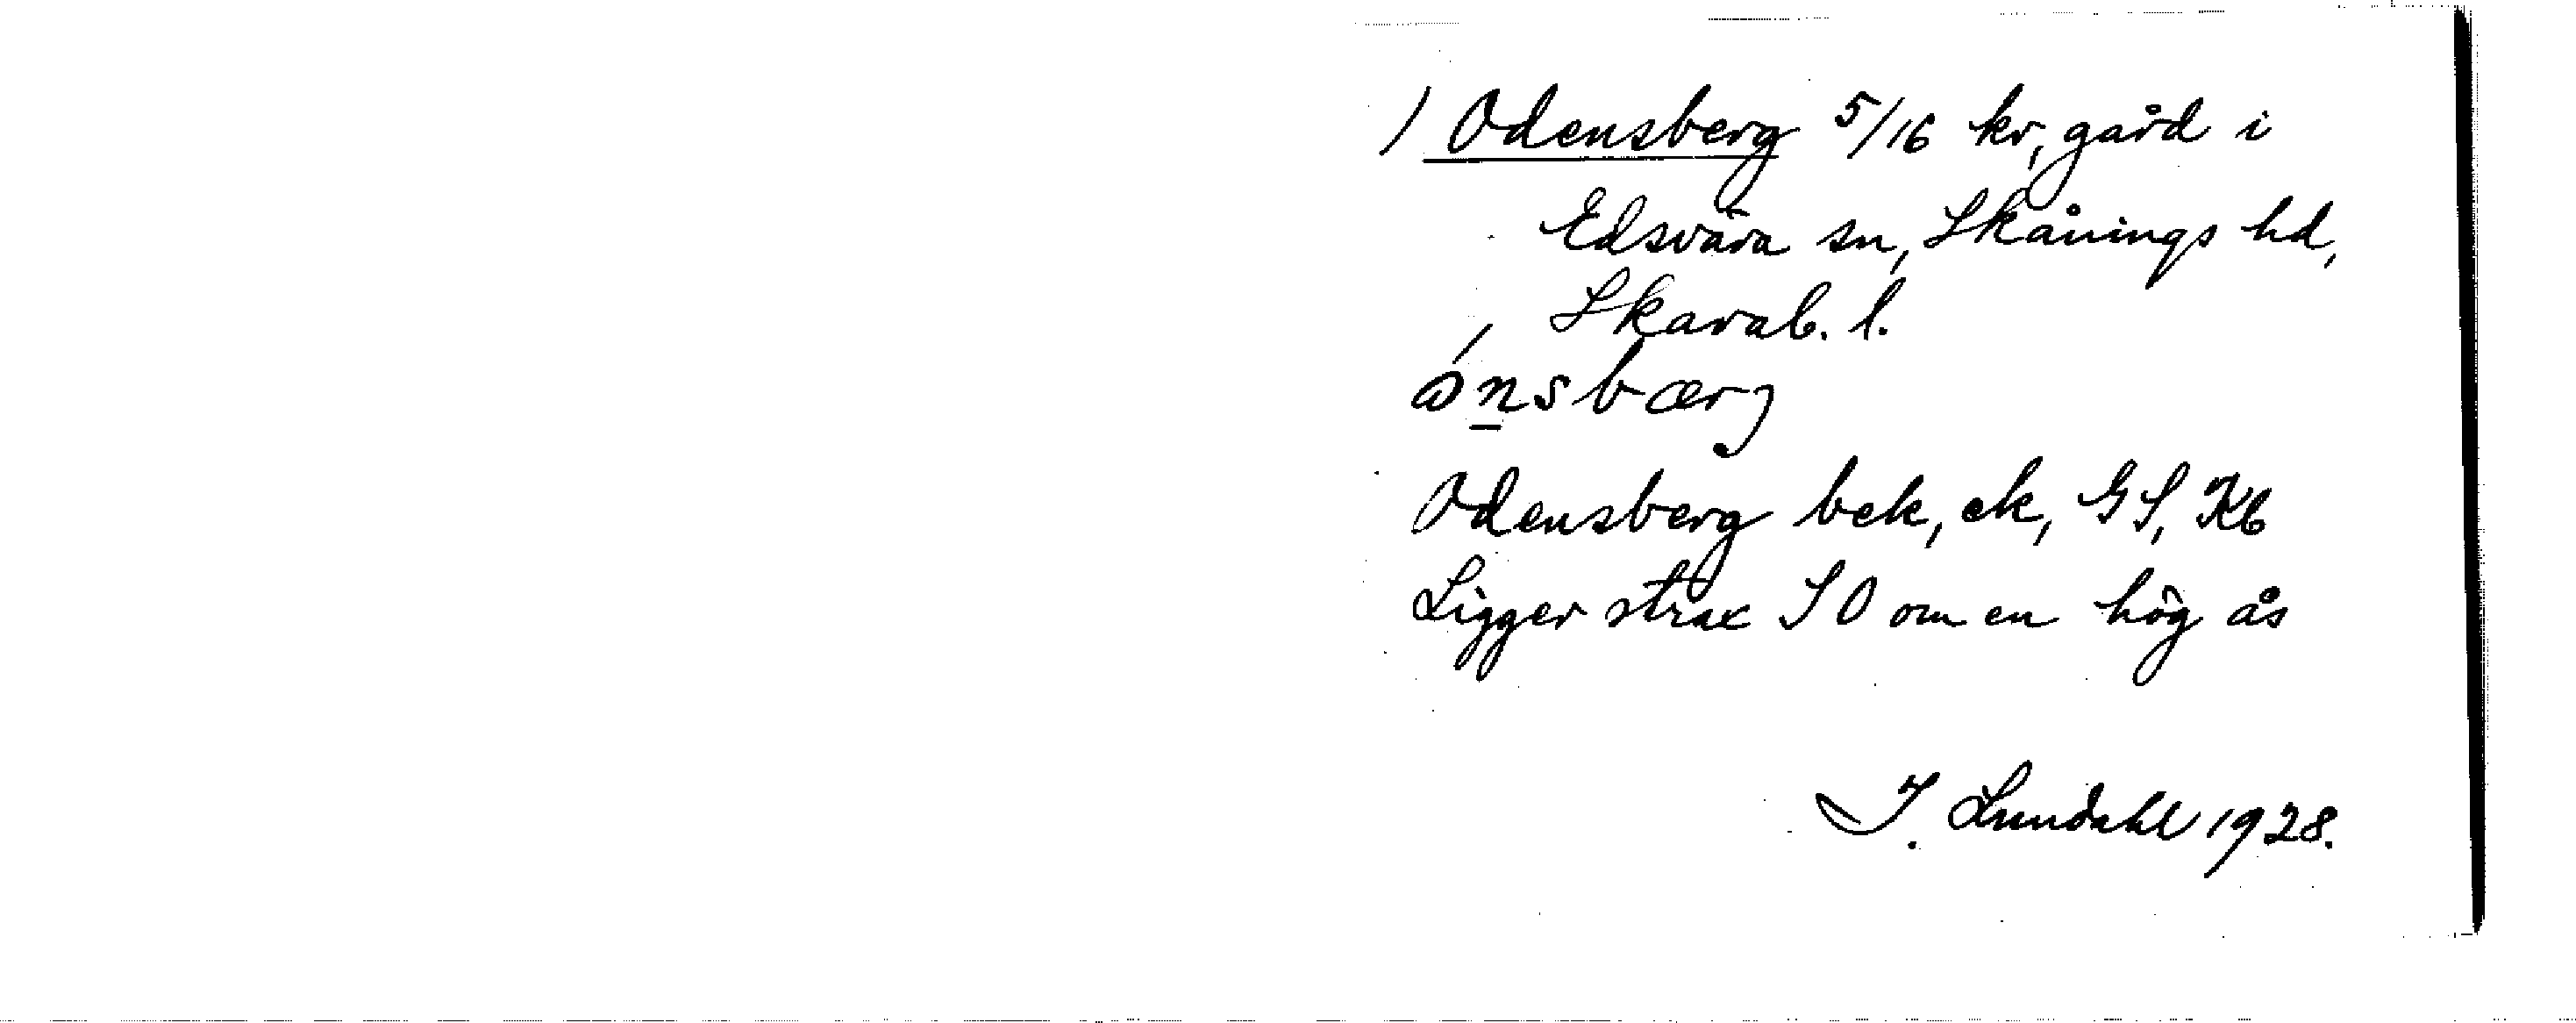 ) Odensberg 5/16 kr, gård i
Edsvära sn, Skånings hd,
Skarab. l.
ónsbærj
Odensberg bek, ek, GS, Kb
Ligger strax SO om en hög ås
I. Lundahl 1928.